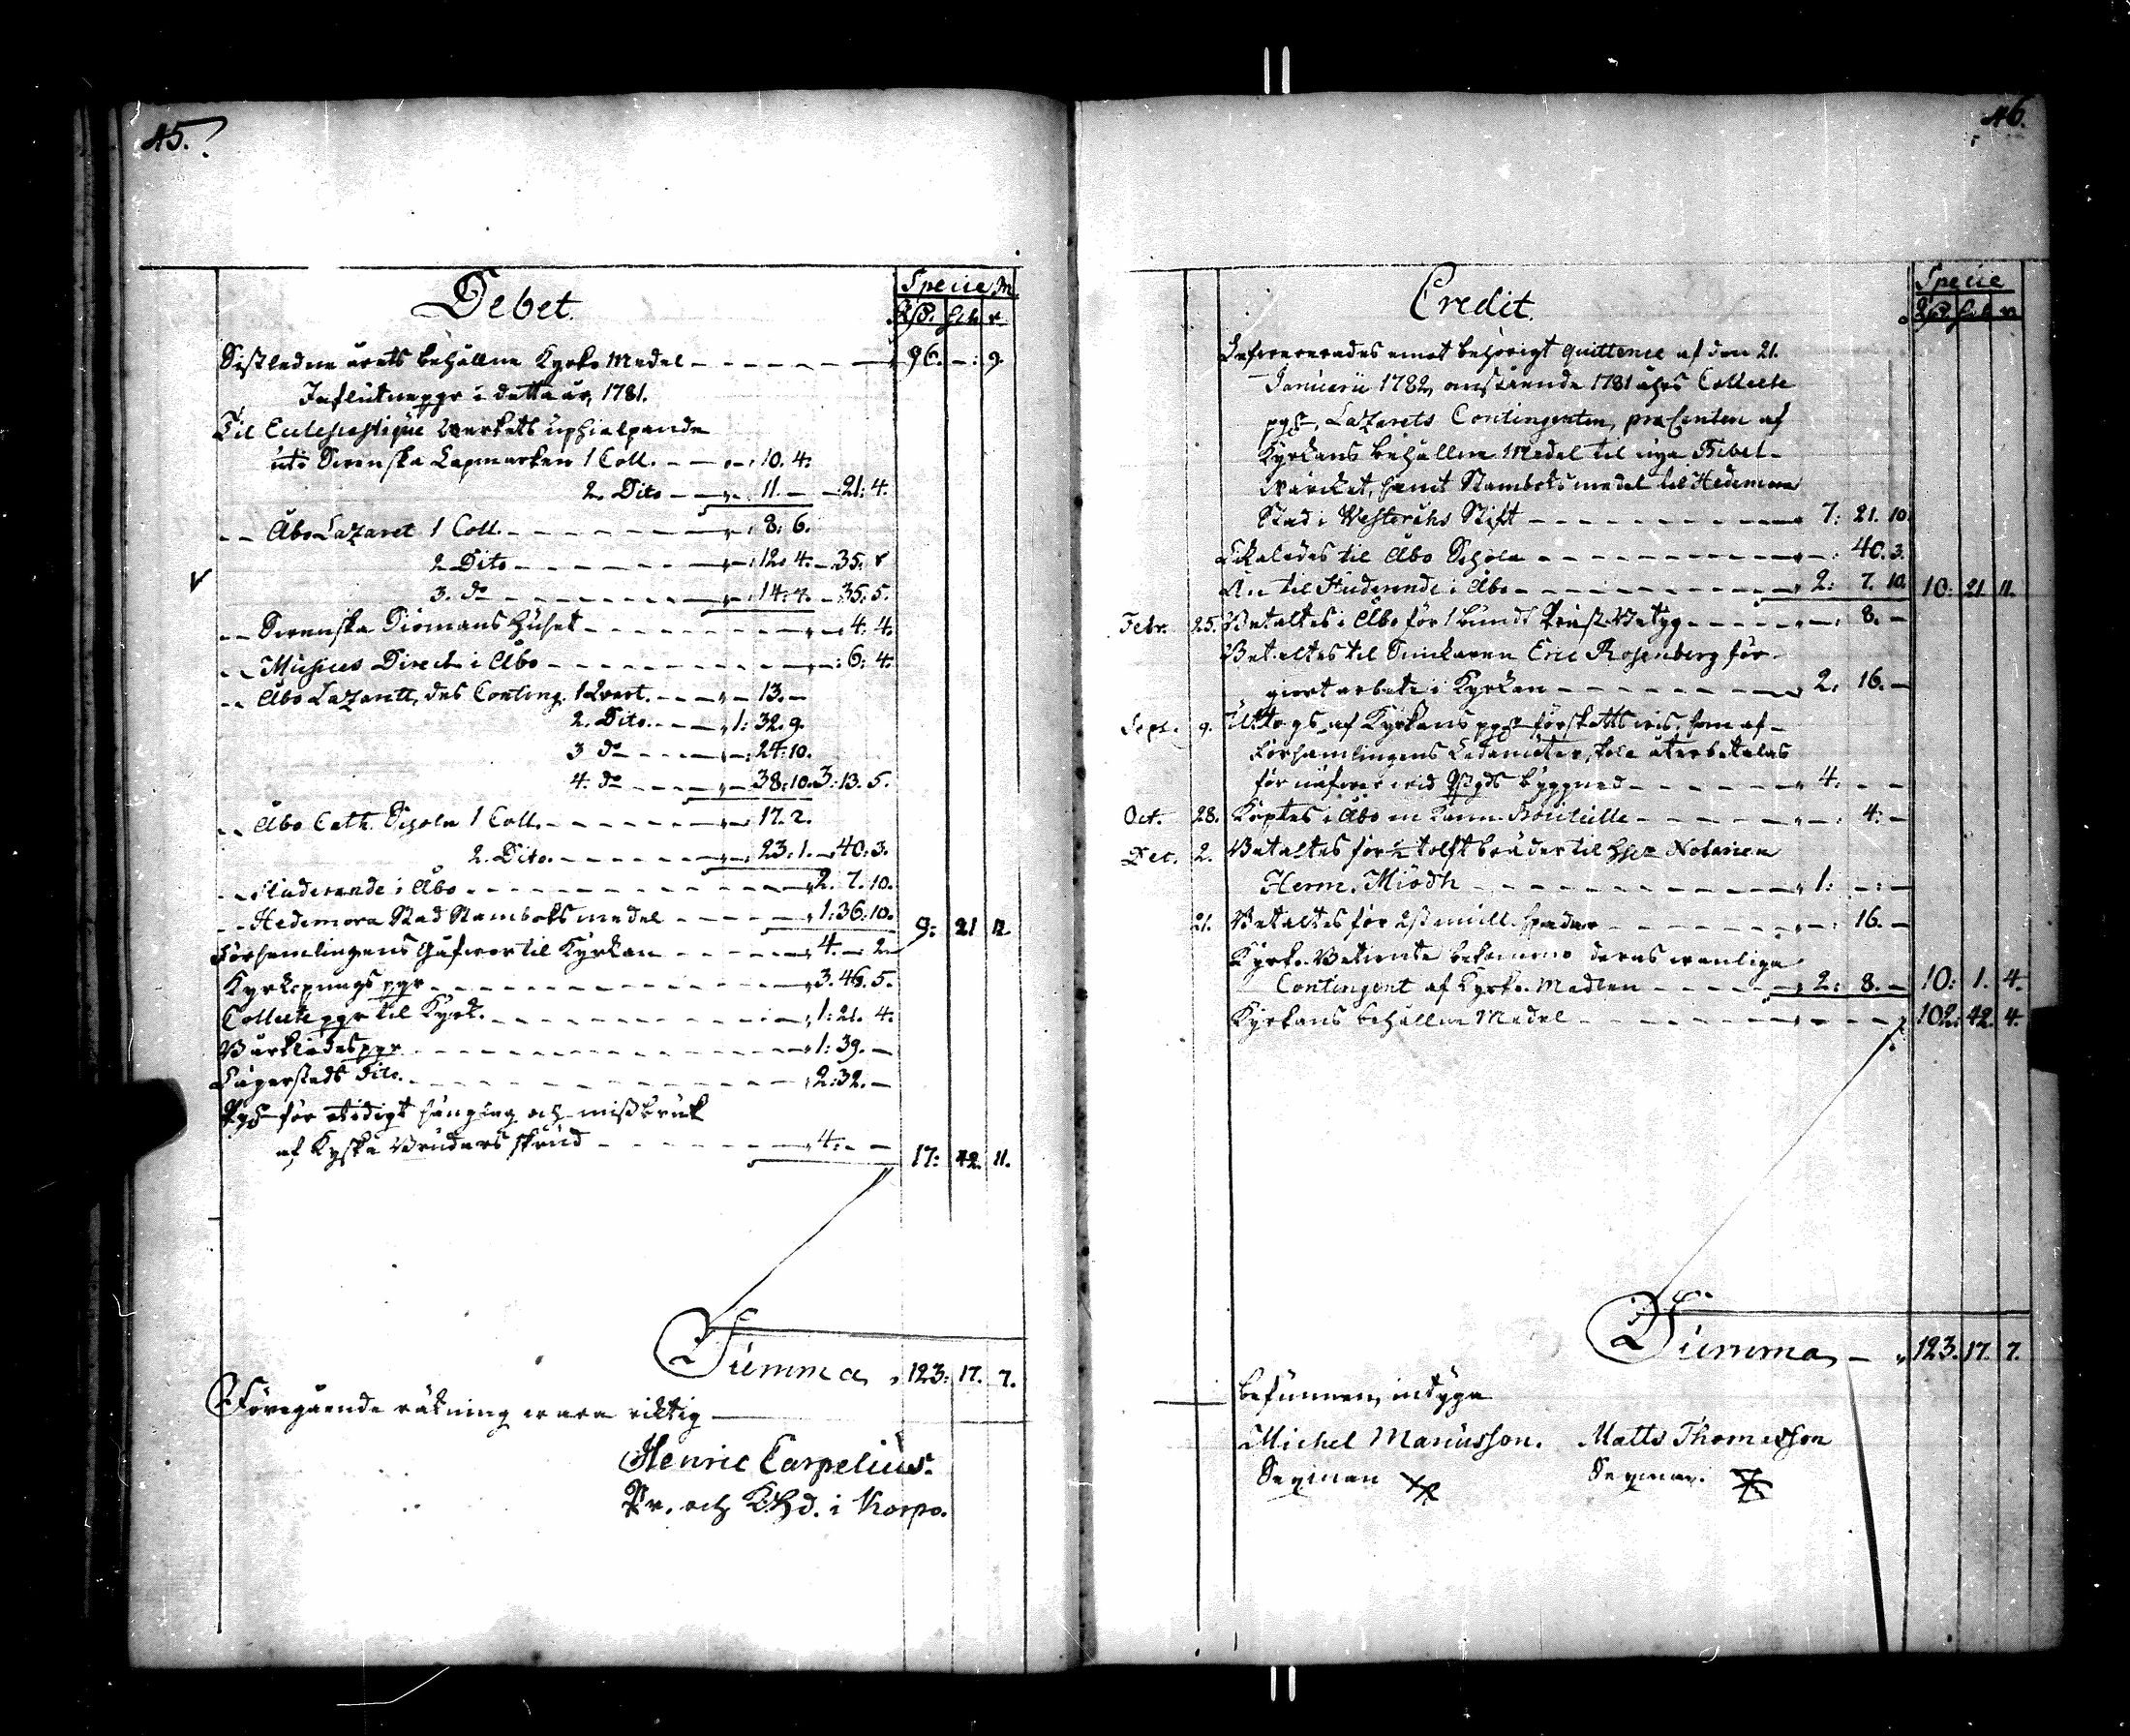 45.
Debet.
Specie M.
Rd. sch r
Sistledne årets behållne Kyrko Medel — 96. —: 9.
Influtne pgr i detta år, 1781.
Til Ecclesiastique Werkets uphielpande
uti Swenska Lapmarken 1 Coll. — 10. 4.
2. Dito — 11. — 21: 4.
Åbo Lazaret 1 Coll. — 8: 6.
2 Dito — 12. 4. — 35. 5
3. do — 14: 7. — 35: 5.
Swenska Siömans Huset — 4: 4.
Musices Direct. i Åbo — 6: 4.
Åbo Lazarett, des Conting. 1 Qvart. — 13. —
2. Dito. — 1: 32. 9.
3 do — 24: 10.
4. do — 38: 10. 3: 13. 5.
Åbo Cath. Schola 1 Coll. — 17. 2.
2. Dito. — 23: 1. — 40: 3.
Studerande i Åbo — 2. 7. 10.
Hedemora Stad Stamboks medel — 1: 36: 10. 9: 21 11.
Församlingens Gåfwor til Kyrkan — 4. — 2
Kyrkopungs pgr — 3. 46. 5.
Collecte pgr til Kyrk. — 1: 21. 4.
Bårklädes pgr — 1: 39. —
Lägerstads Dito. — 2: 32. —
för otidigt sänglag och missbruk
af Kyska Brudars skrud — 4: — — 17: 42. 11.
Summa 123: 17. 7.
Föregående räkning wara riktig —
Henric Carpelius.
Pr. och Khd. i Korpo.
46.
Credit.
Specie
Rd. sch r
Lefwererades emot behörigt quittence af den 21.
Januarii 1782, angående 1781 åhrs Collecte
pgr, Lazarets Contingenten, procenten af
Kyrkans behållne Medel til nya Bibel-
Wärcket, samt Stamboks medel til Hedemora
Stad i Westeråhs Stift — 7: 21. 10.
Likaledes til Åbo Schola — 40. 3.
til Studerande i Åbo — 2: 7. 10. 10: 21 11.
Febr. 25. Betaltes i Åbo för 1 bundt Präst-Betyg — 8. —
Betaltes til Snickaren Eric Rosenberg för
giort arbete i Kyrkan — 2: 16. —
Sept. 9. Uttogs af Kyrkans pgr förskottswis, som af
Församlingens Ledamöter, skola återbetalas
för wid Pgds byggnad — 4. — —
Oct. 28. Köptes i Åbo en Kanne Bouteille — 4: —
Dec. 2. Betaltes för ½ tolft bräder til Notarien
Herm. Miödh — 1: —: —
21. Betaltes för spadar — 16. —
Kyrko Betiente bekommo deras wanliga
Contingent af Kyrko Medlen — 2: 8. — 10: 1. 4.
Kyrkans behållne Medel — 102. 42. 4.
Summa — 123. 17. 7.
befunnen, intyga
Michel Mariusson. Matts Thomasson
Sexman Sexman.